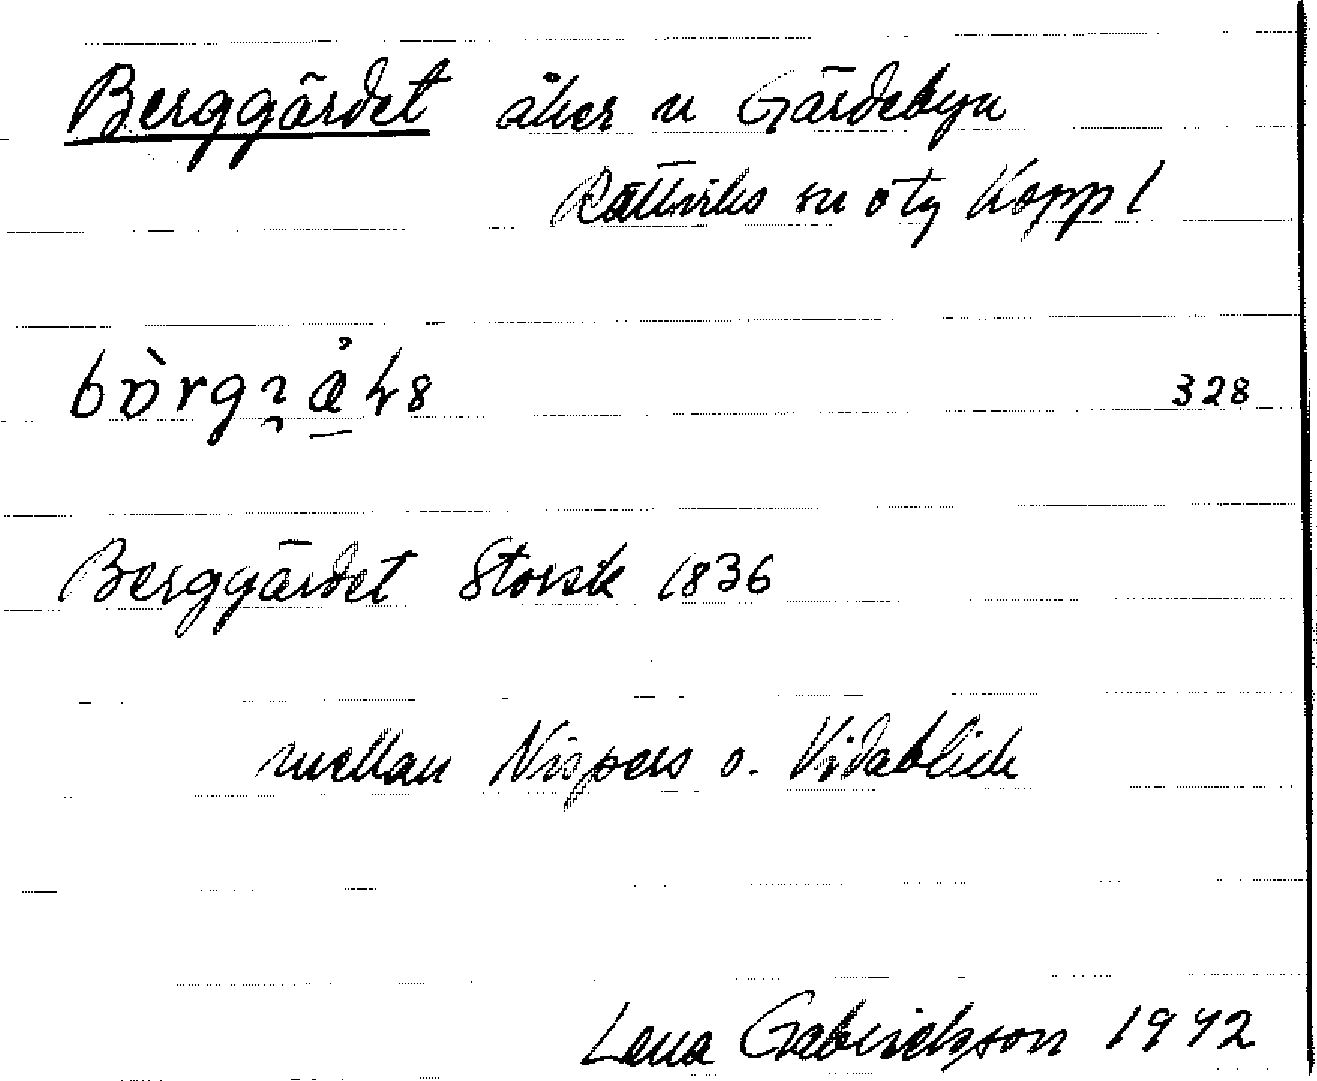 Berggärdet åker n Gärdebyn
Rättviks sn o tg Kopp l
328
Berggärdet Storsk 1836
mellan Nispers o. Vidablick
Lena Gabrielsson 1942